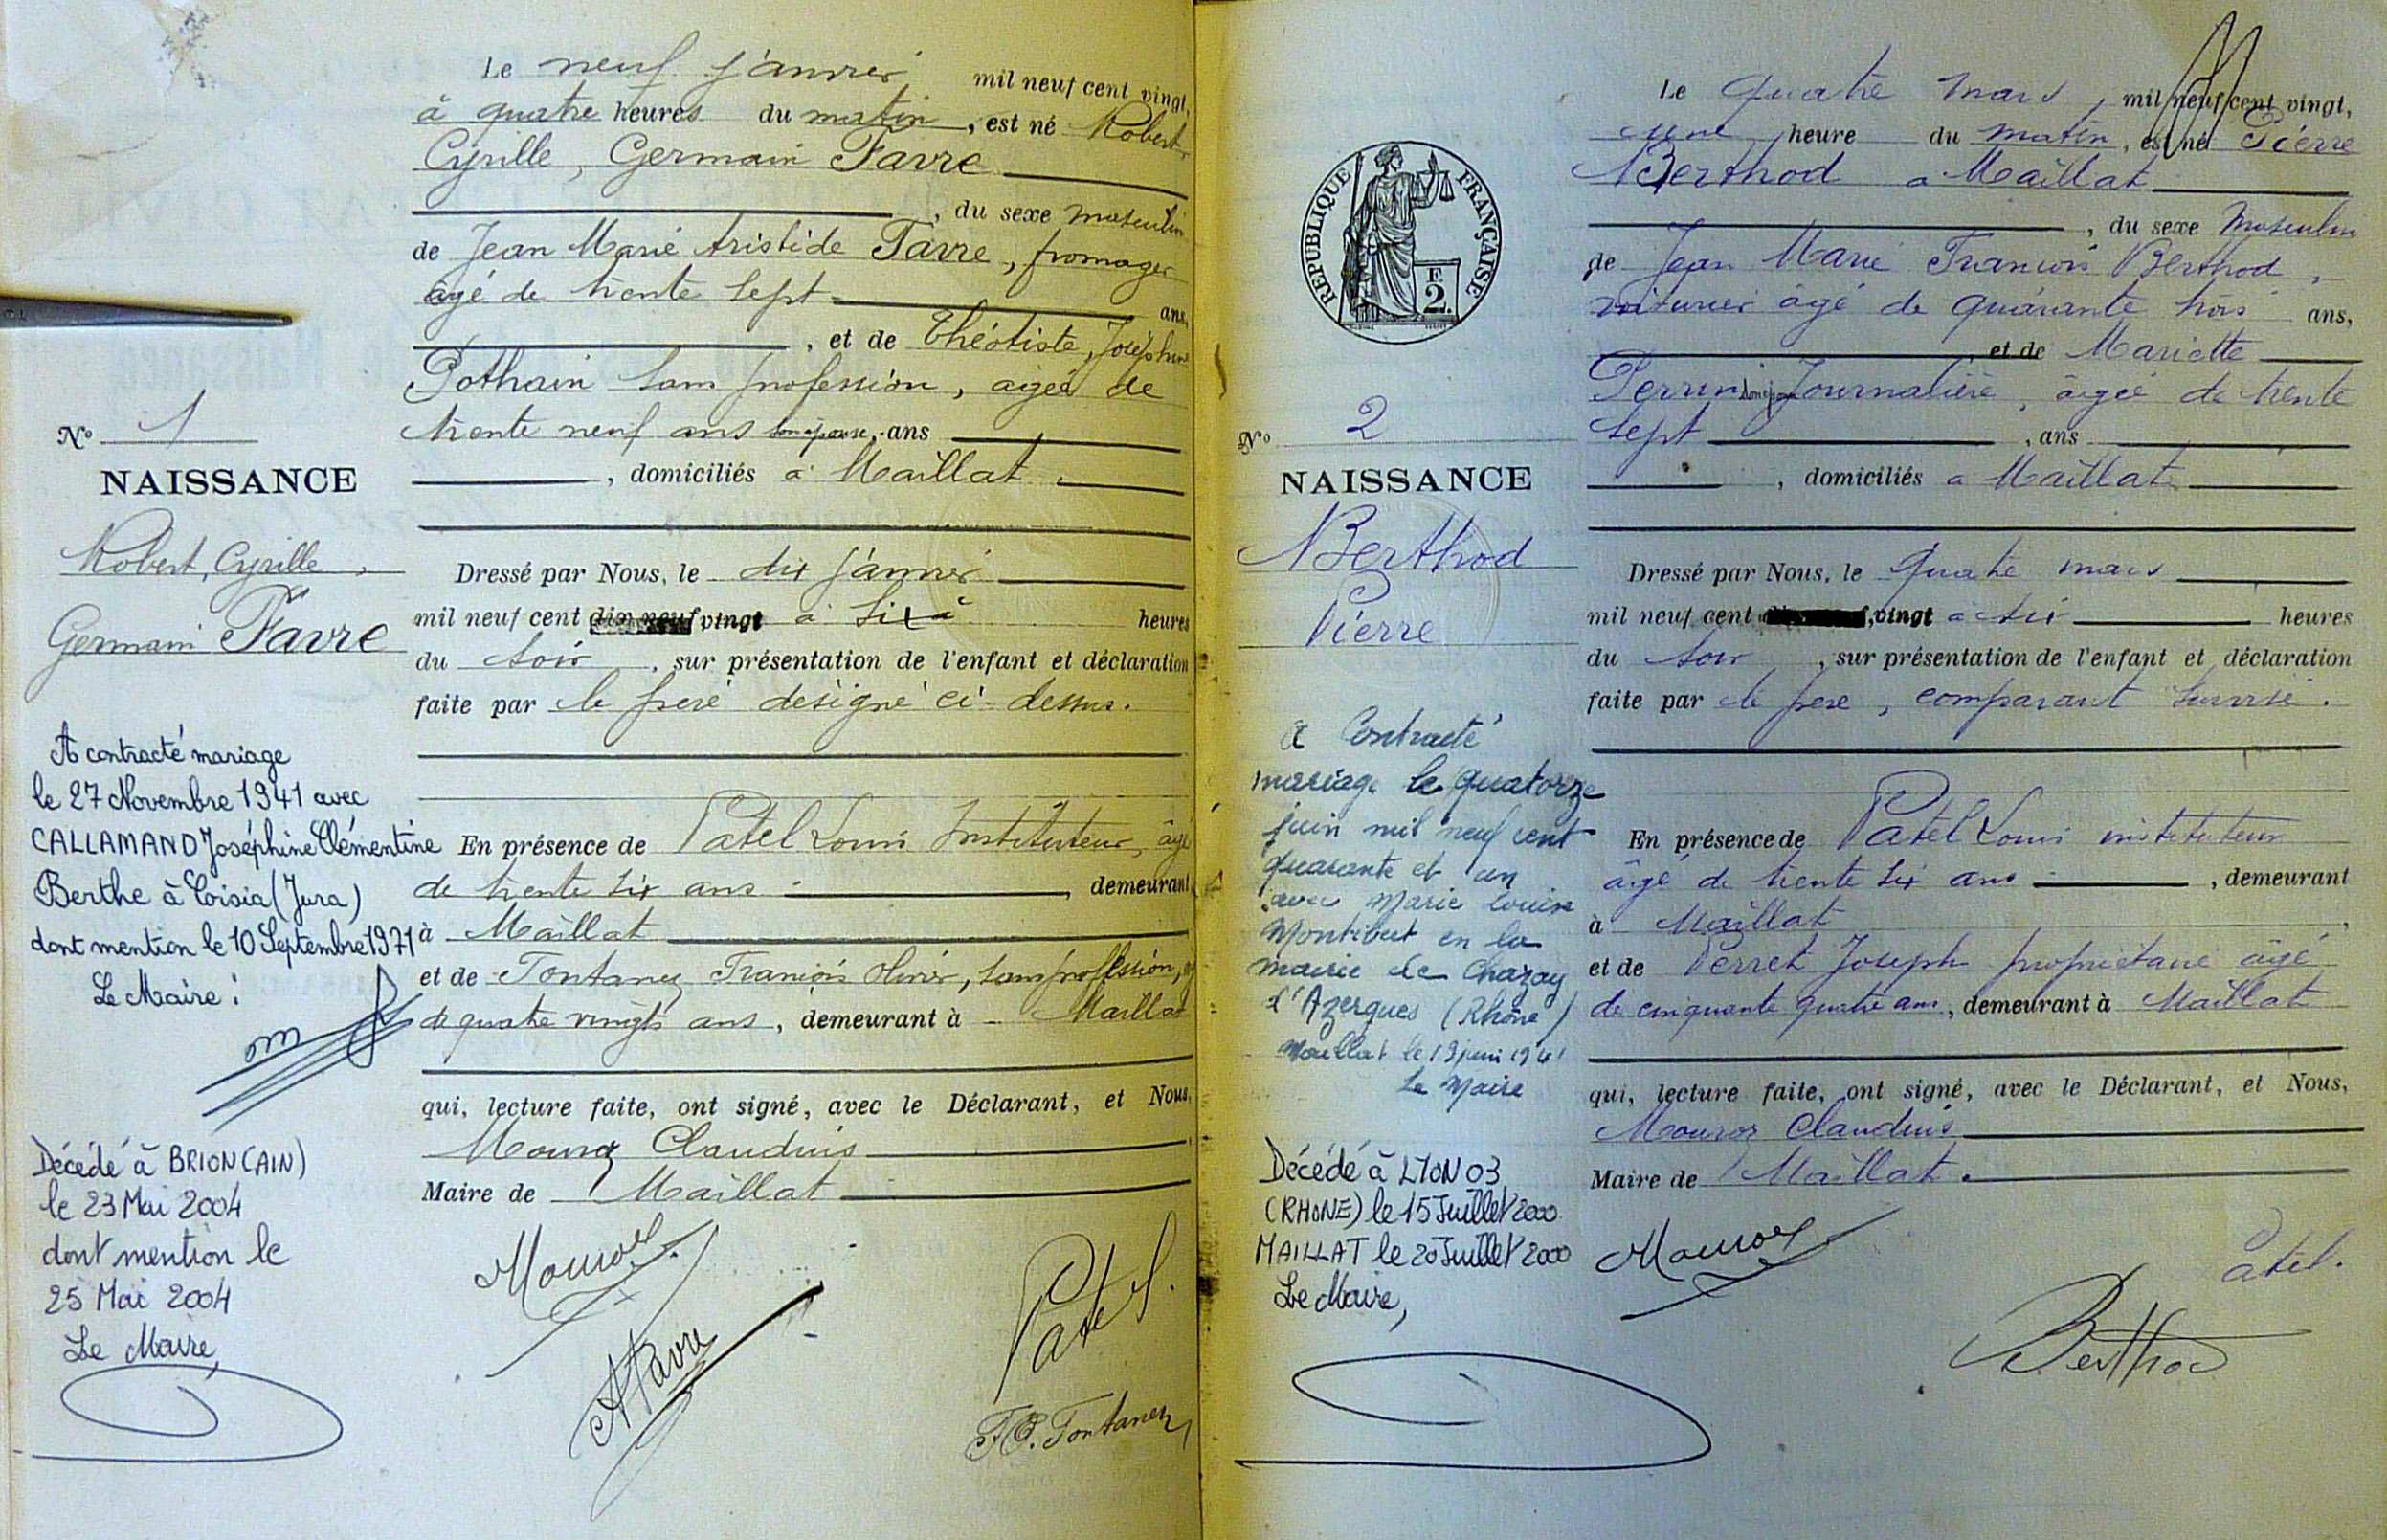 Le neuf janvier mil neuf cent vingt,
à quatre heures du matin, est né Robert,
Cyrille, Germain Favre
, du sexe masculin
de Jean Marie Aristide Favre, fromager
âgé de trente sept ans,
, et de Théotiste, Joséphine
Pothain sans profession, agée de
trente neuf ans son épouse, ans
, domiciliés à Maillat.
Nº 1
NAISSANCE
Robert, Cyrille,
Germain Favre
Dressé par Nous, le dix janvier
mil neuf cent dix-neuf vingt à six heures
du soir, sur présentation de l'enfant et déclaration
faite par le père désigné ci-dessus.
A contracté mariage
le 27 Novembre 1941 avec
CALLAMAND Joséphine Clémentine
Berthe à Loisia (Jura)
dont mention le 10 Septembre 1971
Le Maire :
En présence de Patel Louis Instituteur, âgé
de trente six ans, demeurant
à Maillat
et de Fontanez François Olivier, sans profession,
de quatre vingts ans, demeurant à Maillat
qui, lecture faite, ont signé, avec le Déclarant, et Nous,
Mouroz Claudius
Maire de Maillat
Décédé à BRION (AIN)
le 23 Mai 2004
dont mention le
25 Mai 2004
Le Maire,
Mouroz
AFavre
Patel.
F.O. Fontanez
Le quatre mars, mil neuf cent vingt,
une heure du matin, est né Pierre
Berthod à Maillat
, du sexe masculin
de Jean Marie François Berthod,
voiturier âgé de quarante trois ans,
et de Mariette
Perrin son épouse Journalière, âgée de trente
sept, ans
, domiciliés à Maillat
REPUBLIQUE FRANÇAISE
F.
2.
Nº 2
NAISSANCE
Berthod
Pierre
Dressé par Nous, le quatre mars
mil neuf cent vingt à six heures
du soir, sur présentation de l'enfant et déclaration
faite par le père, comparant susvisé.
a Contracté
mariage le quatorze
juin mil neuf cent
quarante et un
avec Marie Louise
Montibert en la
mairie de Chazay
d'Azergues (Rhône)
Maillat le 19 juin 1941
Le Maire
En présence de Patel Louis instituteur
âgé de trente six ans, demeurant
à Maillat
et de Perret Joseph propriétaire âgé
de cinquante quatre ans, demeurant à Maillat
qui, lecture faite, ont signé, avec le Déclarant, et Nous,
Mouroz Claudius
Maire de Maillat.
Décédé à LYON 03
(RHONE) le 15 Juillet 2000
MAILLAT le 20 Juillet 2000
Le Maire,
Mouroz
Patel.
Berthod